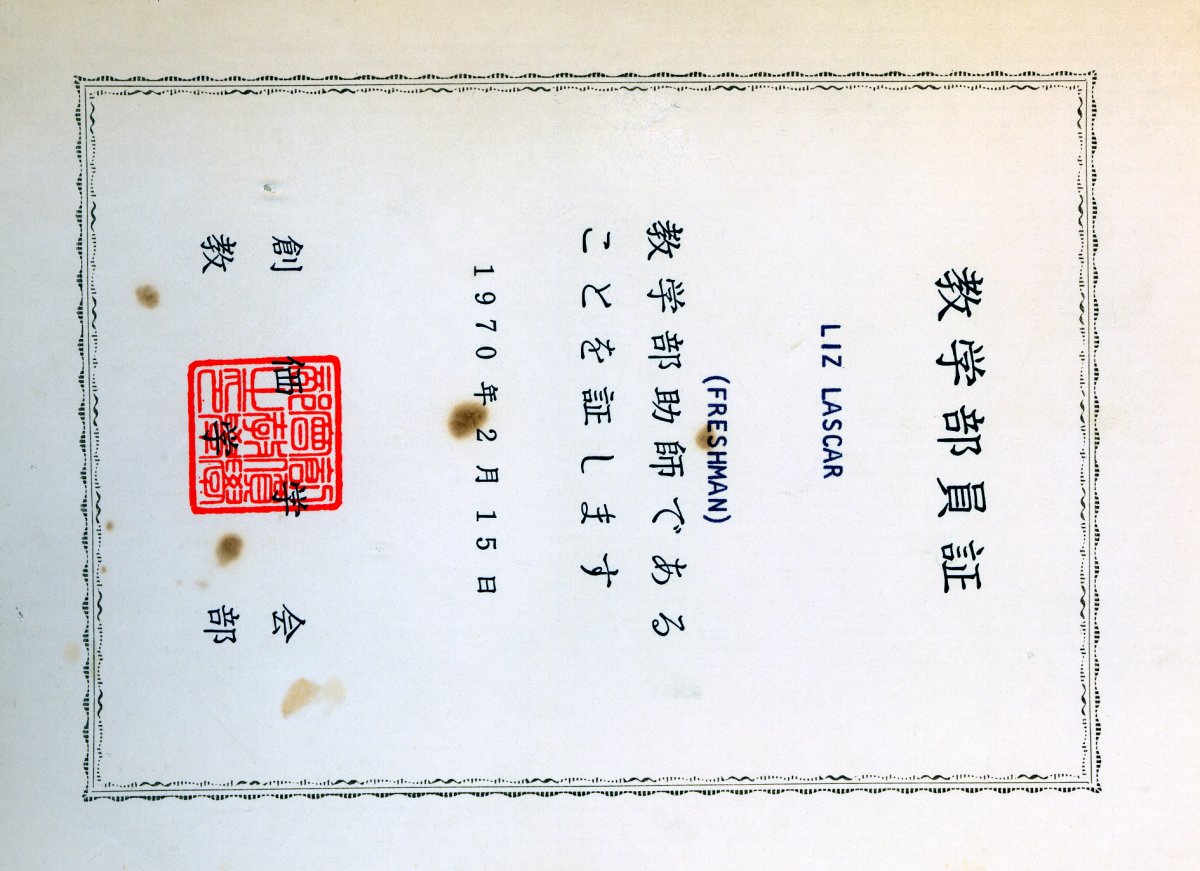 教学部員証
LIZ LASCAR
(FRESHMAN)
教学部助師である
ことを証します
1970年2月15日
創価学会
教学部